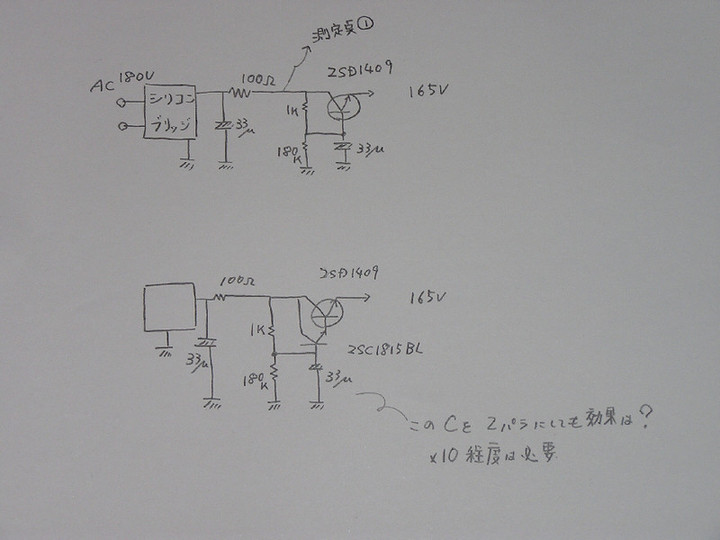 測定点①
AC 180V
シリコン
ブリッジ
100Ω
33μ
1K
180K
2SD1409
33μ
165V
100Ω
33μ
1K
180K
2SD1409
2SC1815BL
33μ
165V
このCを2パラにしても効果は?
×10 程度は必要